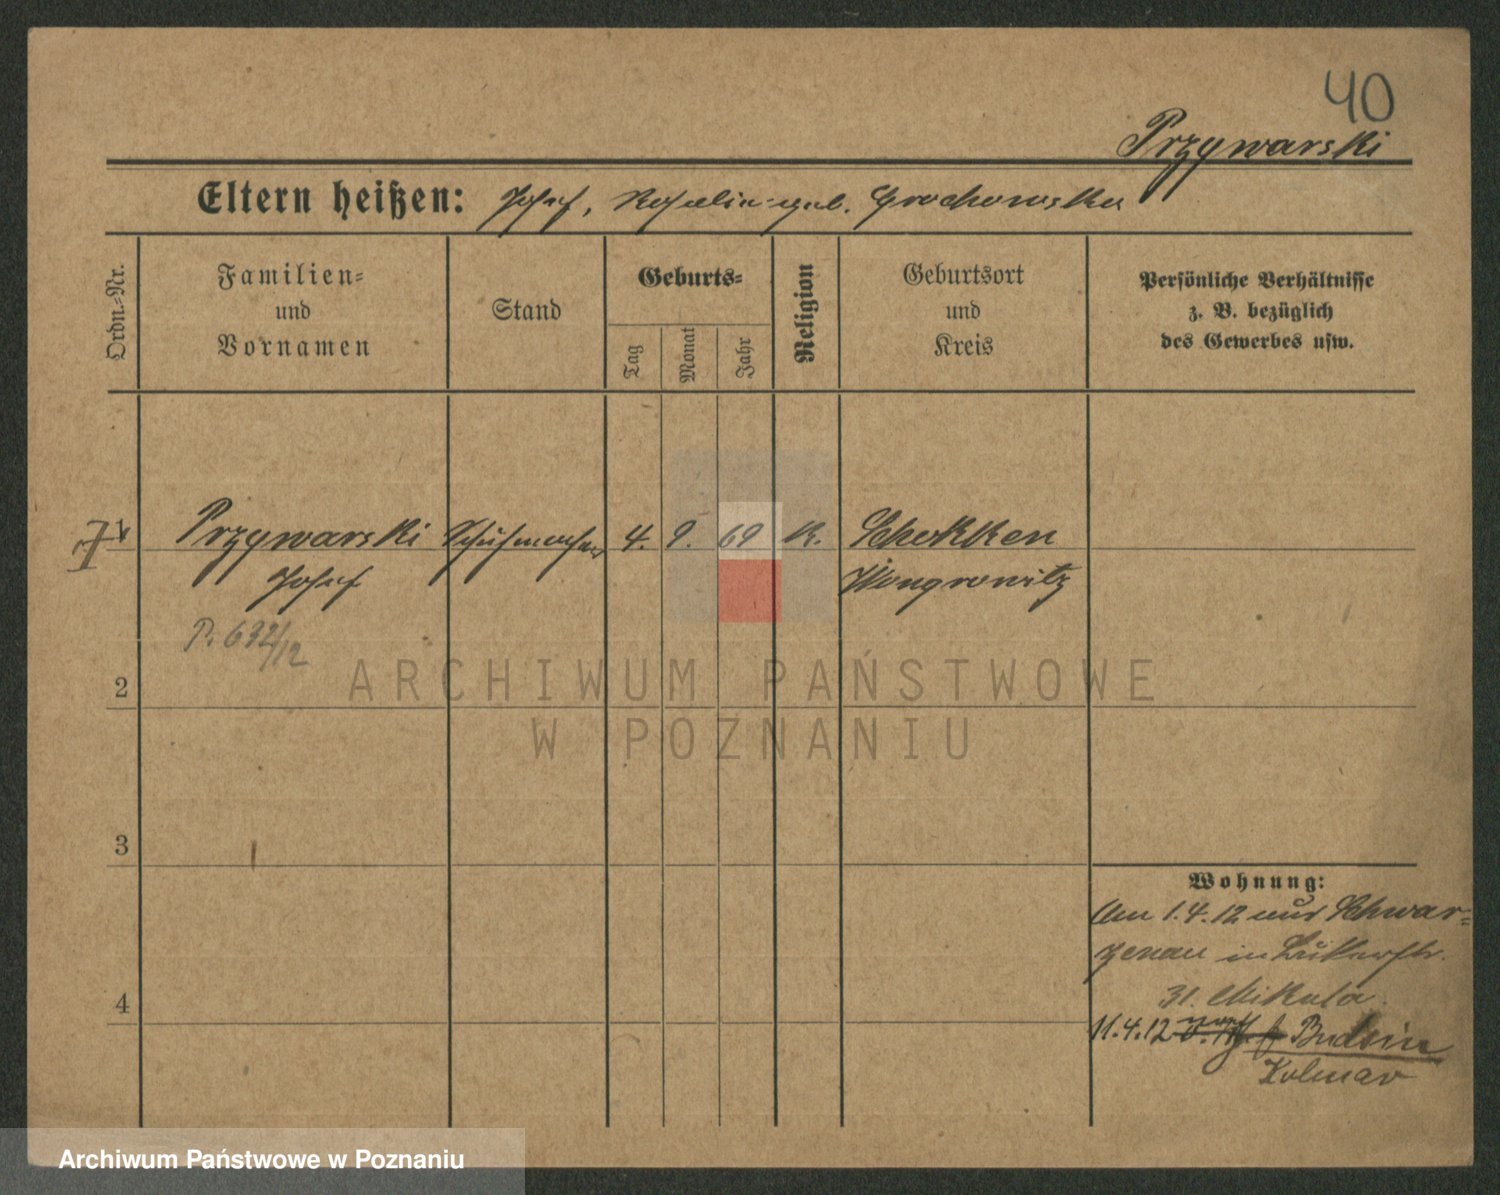 40
Przywarski
Eltern heißen: Josef, Rosalie geb. Grochowska
Ordn.-Nr.
Familien-
und
Vornamen
Stand
Geburts-
Tag
Monat
Jahr
Religion
Geburtsort
und
Kreis
Persönliche Verhältnisse
z. B. bezüglich
des Gewerbes usw.
1
Przywarski Schuhmacher 4. 9. 69 K. Schokken
Josef Wongrowitz
P. 632/12
2
ARCHIWUM PAŃSTWOWE
W POZNANIU
3
4
Wohnung:
Am 1.4.12 aus Schwar-
zenau in
31. Mikula.
11.4.12 Budsin
Kolmar
Archiwum Państwowe w Poznaniu